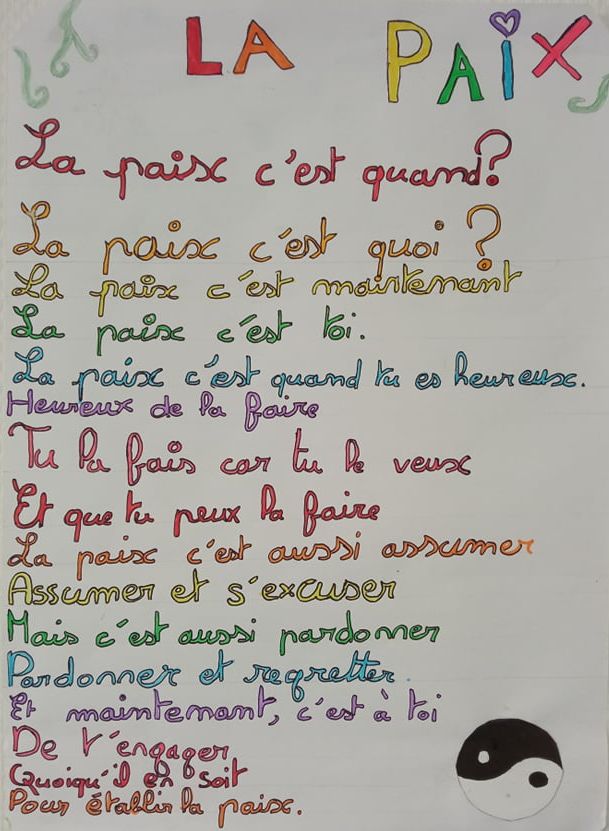 LA PAIX
La paix c'est quand?
La paix c'est quoi ?
La paix c'est maintenant
La paix c'est toi.
La paix c'est quand tu es heureux.
Heureux de la faire
Tu la fais car tu le veux
Et que tu peux la faire
La paix c'est aussi assumer
Assumer et s'excuser
Mais c'est aussi pardonner
Pardonner et regretter.
Et maintenant, c'est à toi
De t'engager
Quoiqu'il en soit
Pour établir la paix.